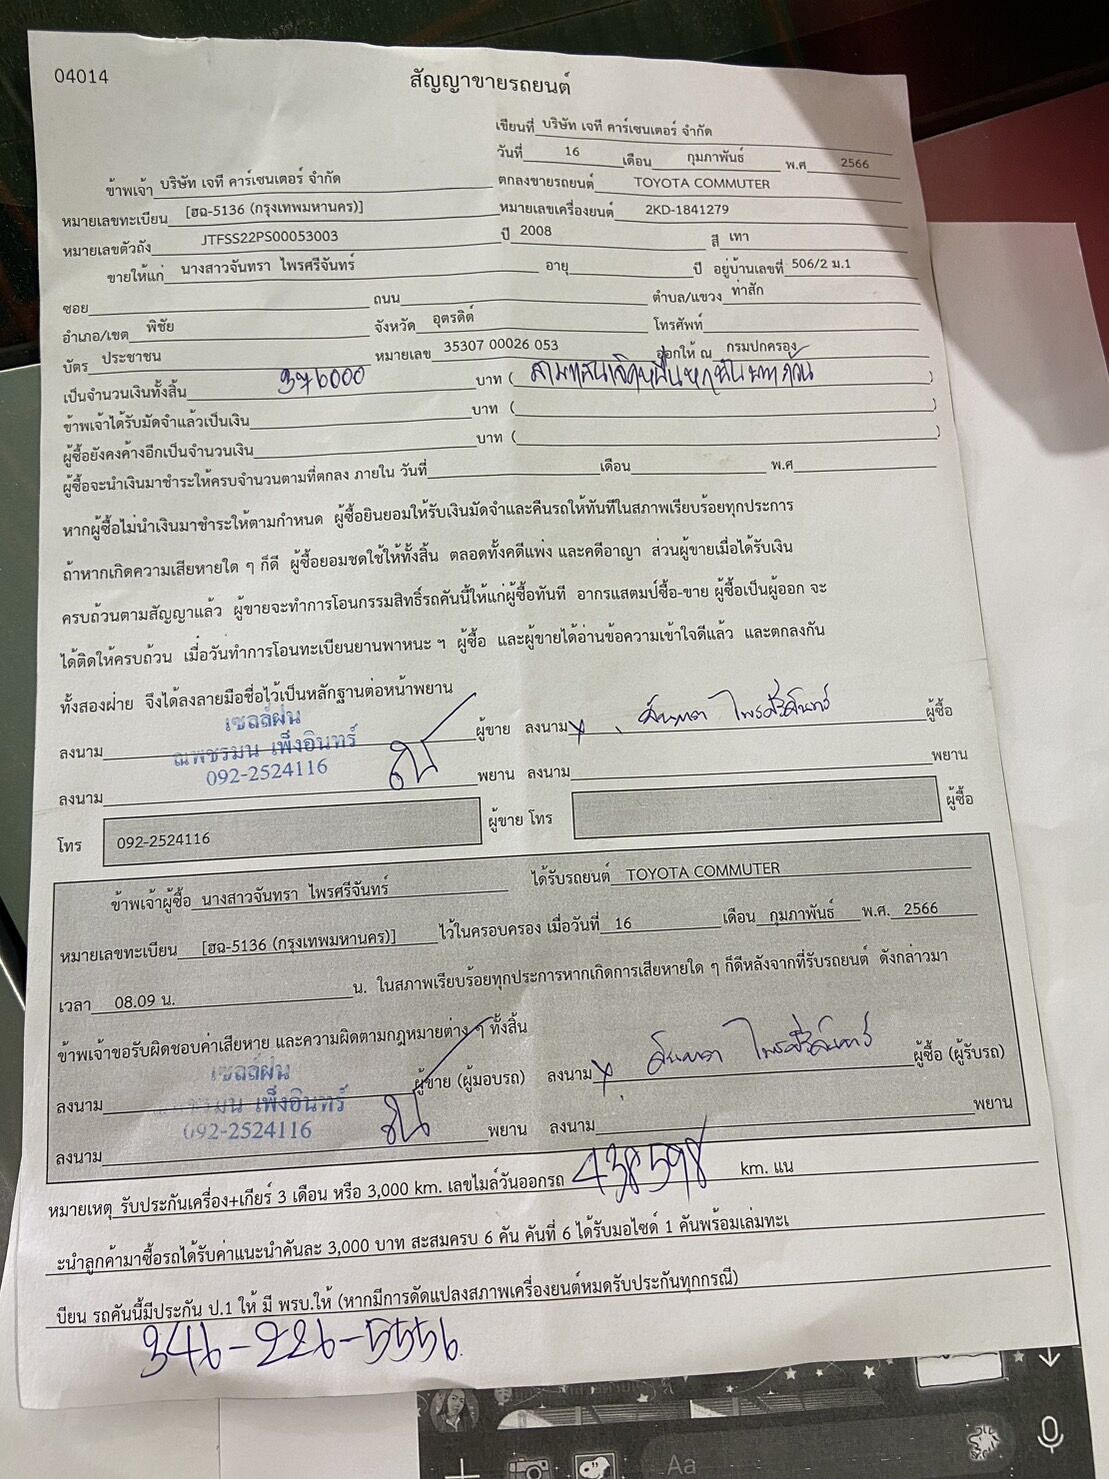 04014
สัญญาขายรถยนต์
เขียนที่ บริษัท เจที คาร์เซนเตอร์ จำกัด
วันที่ 16 เดือน กุมภาพันธ์ พ.ศ 2566
ข้าพเจ้า บริษัท เจที คาร์เซนเตอร์ จำกัด ตกลงขายรถยนต์ TOYOTA COMMUTER
หมายเลขทะเบียน [ฮฉ-5136 (กรุงเทพมหานคร)] หมายเลขเครื่องยนต์ 2KD-1841279
หมายเลขตัวถัง JTFSS22PS00053003 ปี 2008 สี เทา
ขายให้แก่ นางสาวจันทรา ไพรศรีจันทร์ อายุ ปี อยู่บ้านเลขที่ 506/2 ม.1
ซอย ถนน ตำบล/แขวง ท่าสัก
อำเภอ/เขต พิชัย จังหวัด อุตรดิต์ โทรศัพท์
บัตร ประชาชน หมายเลข 35307 00026 053 ออกให้ ณ กรมปกครอง
เป็นจำนวนเงินทั้งสิ้น 376000 บาท ( สามแสนเจ็ดหมื่นหกพันบาทถ้วน )
ข้าพเจ้าได้รับมัดจำแล้วเป็นเงิน บาท ( )
ผู้ซื้อยังคงค้างอีกเป็นจำนวนเงิน บาท ( )
ผู้ซื้อจะนำเงินมาชำระให้ครบจำนวนตามที่ตกลง ภายใน วันที่ เดือน พ.ศ
หากผู้ซื้อไม่นำเงินมาชำระให้ตามกำหนด ผู้ซื้อยินยอมให้รับเงินมัดจำและคืนรถให้ทันทีในสภาพเรียบร้อยทุกประการ
ถ้าหากเกิดความเสียหายใด ๆ ก็ดี ผู้ซื้อยอมชดใช้ให้ทั้งสิ้น ตลอดทั้งคดีแพ่ง และคดีอาญา ส่วนผู้ขายเมื่อได้รับเงิน
ครบถ้วนตามสัญญาแล้ว ผู้ขายจะทำการโอนกรรมสิทธิ์รถคันนี้ให้แก่ผู้ซื้อทันที อากรแสตมป์ซื้อ-ขาย ผู้ซื้อเป็นผู้ออก จะ
ได้ติดให้ครบถ้วน เมื่อวันทำการโอนทะเบียนยานพาหนะ ฯ ผู้ซื้อ และผู้ขายได้อ่านข้อความเข้าใจดีแล้ว และตกลงกัน
ทั้งสองฝ่าย จึงได้ลงลายมือชื่อไว้เป็นหลักฐานต่อหน้าพยาน
เซลล์ฝน
ลงนาม ณพชรมน เพ็งอินทร์ ผู้ขาย ลงนาม x จันทรา ไพรศรีจันทร์ ผู้ซื้อ
092-2524116
ลงนาม พยาน ลงนาม พยาน
โทร 092-2524116 ผู้ขาย โทร ผู้ซื้อ
ข้าพเจ้าผู้ซื้อ นางสาวจันทรา ไพรศรีจันทร์ ได้รับรถยนต์ TOYOTA COMMUTER
หมายเลขทะเบียน [ฮฉ-5136 (กรุงเทพมหานคร)] ไว้ในครอบครอง เมื่อวันที่ 16 เดือน กุมภาพันธ์ พ.ศ. 2566
เวลา 08.09 น. น. ในสภาพเรียบร้อยทุกประการหากเกิดการเสียหายใด ๆ ก็ดีหลังจากที่รับรถยนต์ ดังกล่าวมา
ข้าพเจ้าขอรับผิดชอบค่าเสียหาย และความผิดตามกฎหมายต่าง ๆ ทั้งสิ้น
เซลล์ฝน
ลงนาม ณพชรมน เพ็งอินทร์ ผู้ขาย (ผู้มอบรถ) ลงนาม x จันทรา ไพรศรีจันทร์ ผู้ซื้อ (ผู้รับรถ)
092-2524116
ลงนาม พยาน ลงนาม พยาน
หมายเหตุ รับประกันเครื่อง+เกียร์ 3 เดือน หรือ 3,000 km. เลขไมล์วันออกรถ 438598 km. แน
ะนำลูกค้ามาซื้อรถได้รับค่าแนะนำคันละ 3,000 บาท สะสมครบ 6 คัน คันที่ 6 ได้รับมอไซด์ 1 คันพร้อมเล่มทะเ
บียน รถคันนี้มีประกัน ป.1 ให้ มี พรบ.ให้ (หากมีการดัดแปลงสภาพเครื่องยนต์หมดรับประกันทุกกรณี)
346-226-5556
Aa